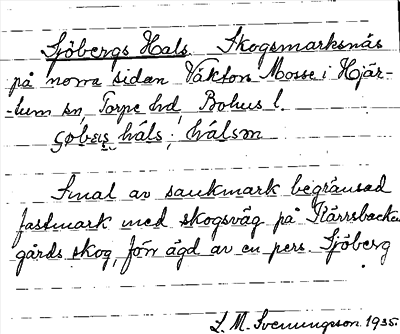 Sjöbergs Hals. Skogsmarksnäs
på norra sidan Väkton Mosse i Hjär-
-tum sn, Torpe hd, Bohus l.
hǻls; hǻlsən
Smal av sankmark begränsad
fastmark med skogsväg på Kärrsbacken
gårds skog, förr ägd av en pers. Sjöberg
L. M. Svenungsson 1935.